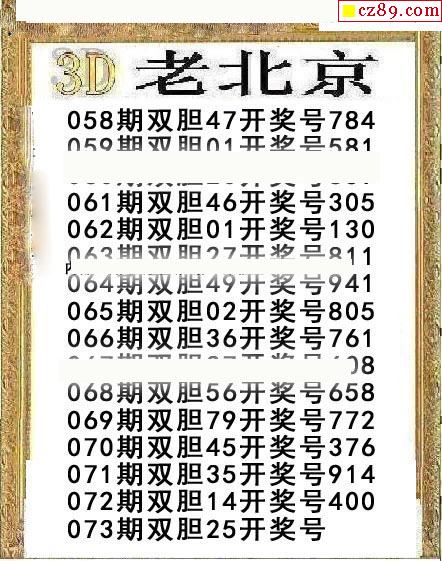 cz89.com
3D 老北京
058期双胆47开奖号784
059期双胆01开奖号581
061期双胆46开奖号305
062期双胆01开奖号130
063期双胆27开奖号811
064期双胆49开奖号941
065期双胆02开奖号805
066期双胆36开奖号761
068期双胆56开奖号658
069期双胆79开奖号772
070期双胆45开奖号376
071期双胆35开奖号914
072期双胆14开奖号400
073期双胆25开奖号